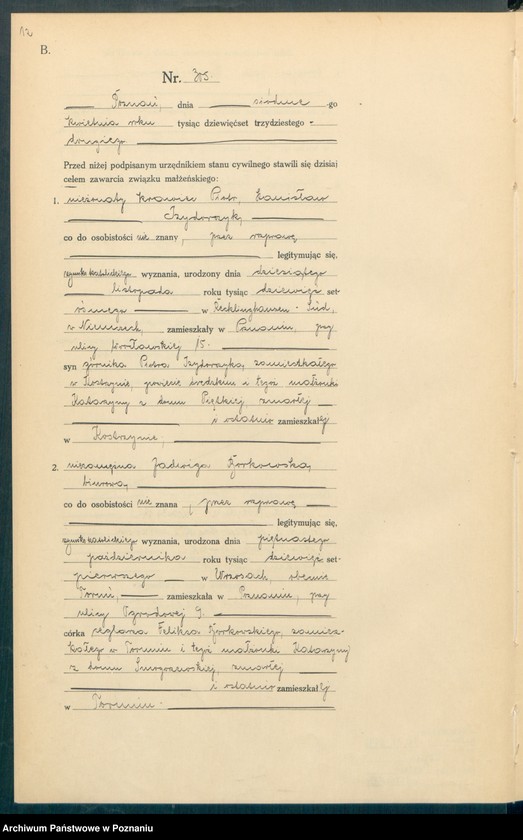 12
B.
Nr. 305.
Poznań, dnia siódme -go
kwietnia roku tysiąc dziewięćset trzydziestego -
drugiego
Przed niżej podpisanym urzędnikiem stanu cywilnego stawili się dzisiaj
celem zawarcia związku małżeńskiego:
1. nieżonaty krawiec Piotr, Stanisław
Izydorczyk,
co do osobistości nie znany, przez rozprawę
legitymując się,
rzymsko katolickiego wyznania, urodzony dnia dziesiątego
listopada roku tysiąc dziewięć set-
ósmego w Recklinghausen - Süd,
w Niemczech, zamieszkały w Poznaniu, przy
ulicy Wrocławskiej 15.
syn górnika Piotra Izydorczyka, zamieszkałego
w Kostrzynie, powiecie średzkim i tegoż małżonki
Katarzyny z domu zmarłej
i ostatnio zamieszkałej
w Kostrzynie,
2. niezamężna Jadwiga Borkowska,
biurowa,
co do osobistości nie znana, przez rozprawę
legitymując się,
rzymsko katolickiego wyznania, urodzona dnia piętnastego
października roku tysiąc dziewięć set-
pierwszego w Wrzosach, obecnie
Toruń, zamieszkała w Poznaniu, przy
ulicy Ogrodowej 9.
córka ceglarza Feliksa Borkowskiego, zamiesz-
kałego w Toruniu i tegoż małżonki Katarzyny
z domu zmarłej
i ostatnio zamieszkałej
w Toruniu.
Archiwum Państwowe w Poznaniu